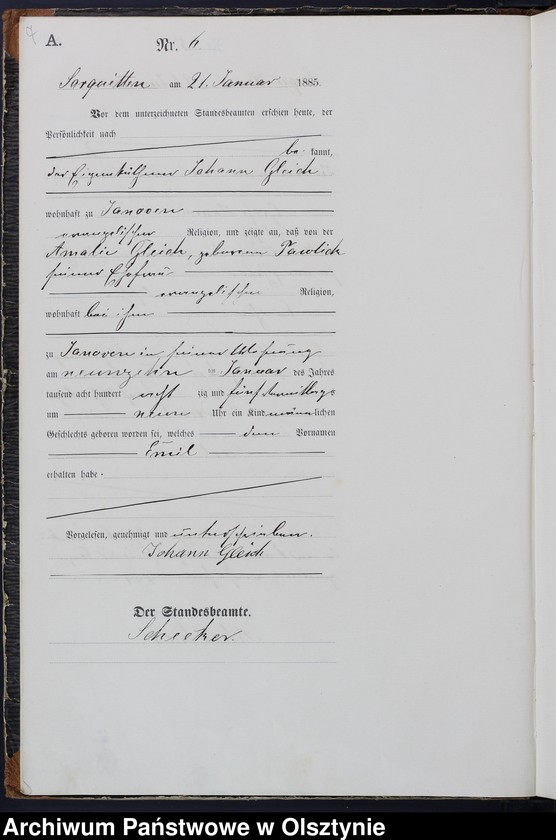 A.
Nr. 6
Sorquitten am 21. Januar 1885.
Vor dem unterzeichneten Standesbeamten erschien heute, der
Persönlichkeit nach
be kannt,
der Eigenkäthner Johann Gleich
wohnhaft zu Janowen
evangelischer Religion, und zeigte an, daß von der
Amalie Gleich, geborenen Pawlick
seiner Ehefrau
evangelischer Religion,
wohnhaft bei ihm
zu Janowen in seiner Wohnung
am neunzehn ten Januar des Jahres
tausend acht hundert acht zig und fünf Vormittags
um neun Uhr ein Kind männlichen
Geschlechts geboren worden sei, welches den Vornamen
Emil
erhalten habe.
Vorgelesen, genehmigt und unterschrieben.
Johann Gleich
Der Standesbeamte.
Archiwum Państwowe w Olsztynie